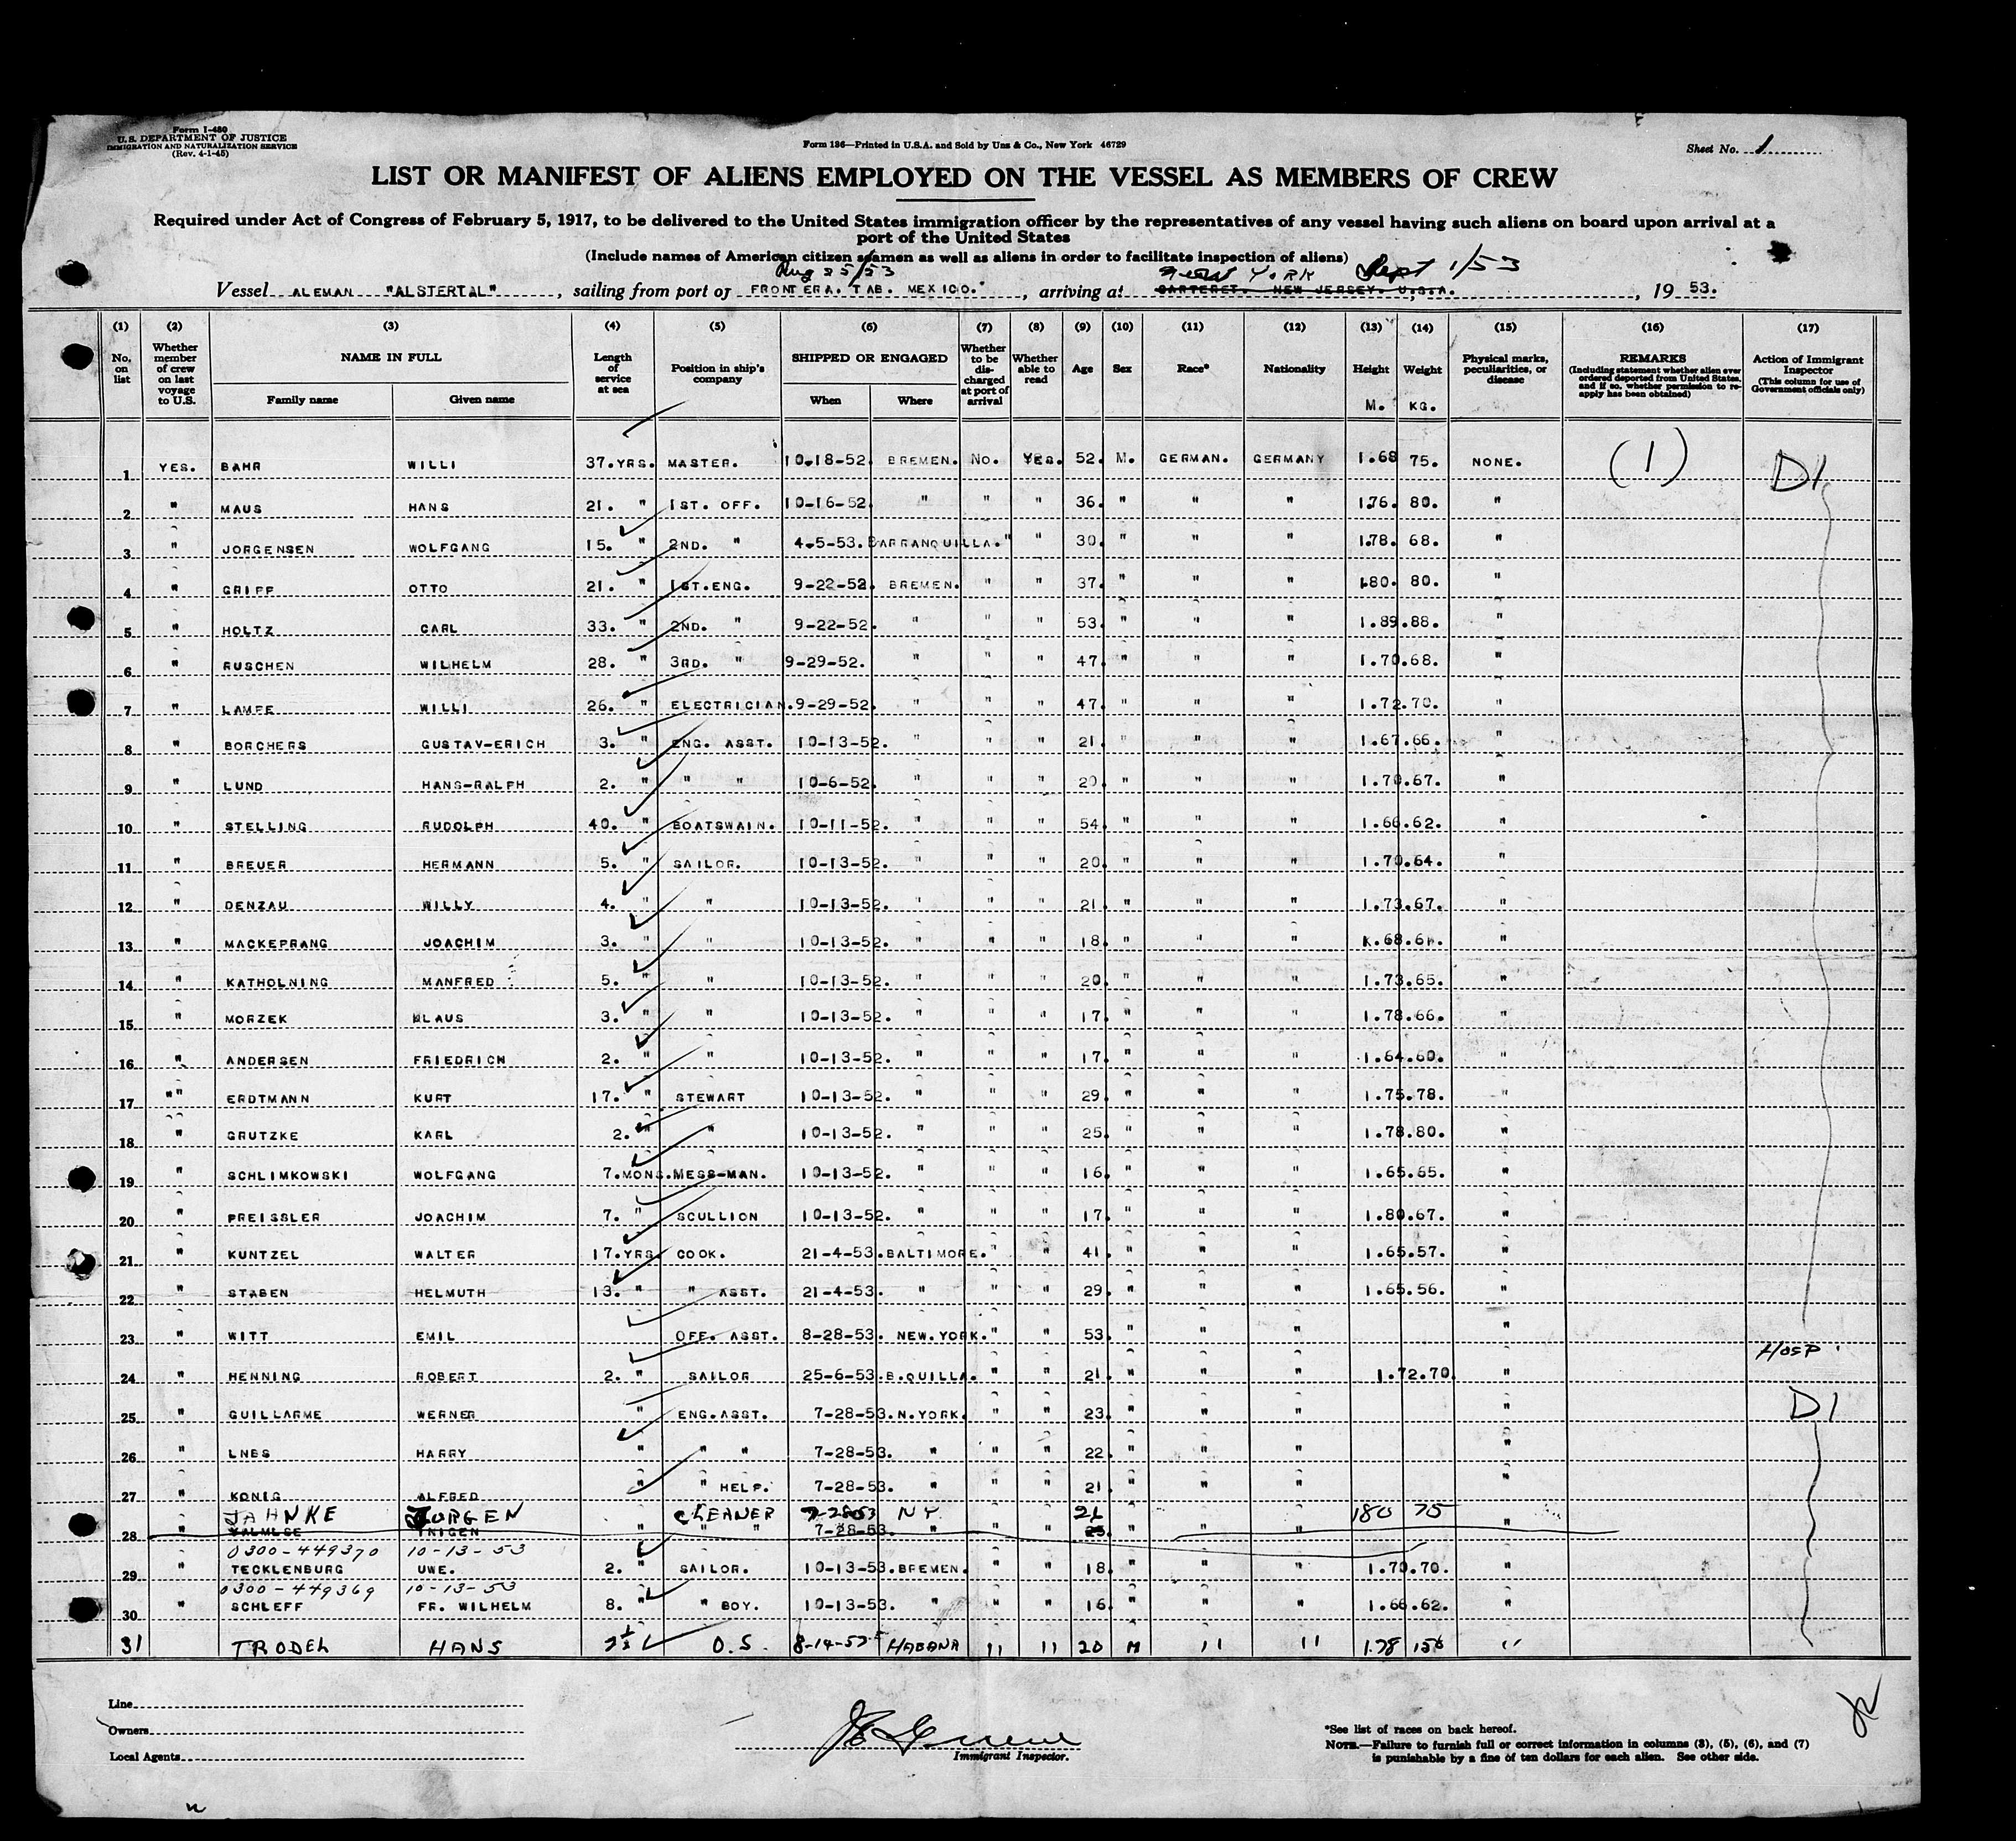 Form I-480
U.S. DEPARTMENT OF JUSTICE
IMMIGRATION AND NATURALIZATION SERVICE
(Rev. 4-1-45)
Form 186—Printed in U.S.A. and Sold by Unz & Co., New York 46729
Sheet No. 1
LIST OR MANIFEST OF ALIENS EMPLOYED ON THE VESSEL AS MEMBERS OF CREW
Required under Act of Congress of February 5, 1917, to be delivered to the United States immigration officer by the representatives of any vessel having such aliens on board upon arrival at a
port of the United States
(Include names of American citizen seamen as well as aliens in order to facilitate inspection of aliens)
Aug 25/53 New York Sept 1/53
Vessel ALEMAN "ALSTERTAL", sailing from port of FRONTERA. TAB. MEXICO., arriving at CARTERET. NEW JERSEY. U.S.A., 19 53.
(1) (2) (3) (4) (5) (6) (7) (8) (9) (10) (11) (12) (13) (14) (15) (16) (17)
No. on list
Whether member of crew on last voyage to U.S.
NAME IN FULL
Family name Given name
Length of service at sea
Position in ship's company
SHIPPED OR ENGAGED
When Where
Whether to be discharged at port of arrival
Whether able to read
Age Sex Race* Nationality Height Weight
M. KG.
Physical marks, peculiarities, or disease
REMARKS
(Including statement whether alien ever ordered deported from United States, and if so, whether permission to reapply has been obtained)
Action of Immigrant Inspector
(This column for use of Government officials only)
1 YES. BAHR WILLI 37.YRS. MASTER. 10-18-52. BREMEN. No. YES. 52. M. GERMAN. GERMANY 1.68 75. NONE. (1) D1
2 " MAUS HANS 21. " 1ST. OFF. 10-16-52. " " " 36. " " " 1.76. 80. "
3 " JORGENSEN WOLFGANG 15. " 2ND. " 4-5-53. BARRANQUILLA. " " 30. " " " 1.78. 68. "
4 " GRIFF OTTO 21. " 1ST.ENG. 9-22-52. BREMEN. " " 37. " " " 1.80. 80. "
5 " HOLTZ CARL 33. " 2ND. " 9-22-52. " " " 53. " " " 1.89.88. "
6 " RUSCHEN WILHELM 28. " 3RD. " 9-29-52. " " " 47. " " " 1.70.68. "
7 " LAMPE WILLI 26. " ELECTRICIAN. 9-29-52. " " " 47. " " " 1.72.70. "
8 " BORCHERS GUSTAV-ERICH 3. " ENG. ASST. 10-13-52. " " " 21. " " " 1.67.66. "
9 " LUND HANS-RALPH 2. " " " 10-6-52. " " " 20. " " " 1.70.67. "
10 " STELLING RUDOLPH 40. " BOATSWAIN. 10-11-52. " " " 54. " " " 1.66.62. "
11 " BREUER HERMANN 5. " SAILOR. 10-13-52. " " " 20. " " " 1.70.64. "
12 " DENZAU WILLY 4. " " 10-13-52. " " " 21. " " " 1.73.67. "
13 " MACKEPRANG JOACHIM 3. " " 10-13-52. " " " 18. " " " 1.68.61. "
14 " KATHOLNING MANFRED 5. " " 10-13-52. " " " 20. " " " 1.73.65. "
15 " MORZEK KLAUS 3. " " 10-13-52. " " " 17. " " " 1.78.66. "
16 " ANDERSEN FRIEDRICH 2. " " 10-13-52. " " " 17. " " " 1.64.60. "
17 " " ERDTMANN KURT 17. " STEWART 10-13-52. " " " 29. " " " 1.75.78. "
18 " GRUTZKE KARL 2. " " 10-13-52. " " " 25. " " " 1.78.80. "
19 " SCHLIMKOWSKI WOLFGANG 7.MONS. MESS-MAN. 10-13-52. " " " 16. " " " 1.65.65. "
20 " PREISSLER JOACHIM 7. " SCULLION 10-13-52. " " " 17. " " " 1.80.67. "
21 " KUNTZEL WALTER 17.YRS. COOK. 21-4-53. BALTIMORE. " " 41. " " " 1.65.57. "
22 " STABEN HELMUTH 13. " " ASST. 21-4-53. " " " 29. " " " 1.65.56. "
23 " WITT EMIL OFF. ASST. 8-28-53. NEW.YORK. " " 53. " " " "
24 " HENNING ROBERT 2. " SAILOR 25-6-53. B.QUILLA. " " 21. " " " 1.72.70. " Hosp.
25 " GUILLARME WERNER " ENG.ASST. 7-28-53. N.YORK. " " 23. " " " " D1
26 " LNBS HARRY " " " 7-28-53. " " " 22. " " " "
27 " KONIG ALFRED " " HELP. 7-28-53. " " " 21. " " " "
JAHNKE JURGEN CLEANER 7-28-53 NY 21 180 75
28 " " " " 7-28-53. " " " 25. " " "
0300-449370 10-13-53
29 " TECKLENBURG UWE. 2. " SAILOR. 10-13-53. BREMEN. " " 18. " " " 1.70.70. "
0300-449369 10-13-53
30 " SCHLEFF FR. WILHELM 8. " " BOY. 10-13-53. " " " 16. " " " 1.66.62. "
31 TRODEL HANS 2½ O.S. 8-14-53 HABANA " " 20 M " " 1.78 156 "
Line
Owners
Local Agents
Immigrant Inspector.
*See list of races on back hereof.
NOTE.—Failure to furnish full or correct information in columns (3), (5), (6), and (7)
is punishable by a fine of ten dollars for each alien. See other side.